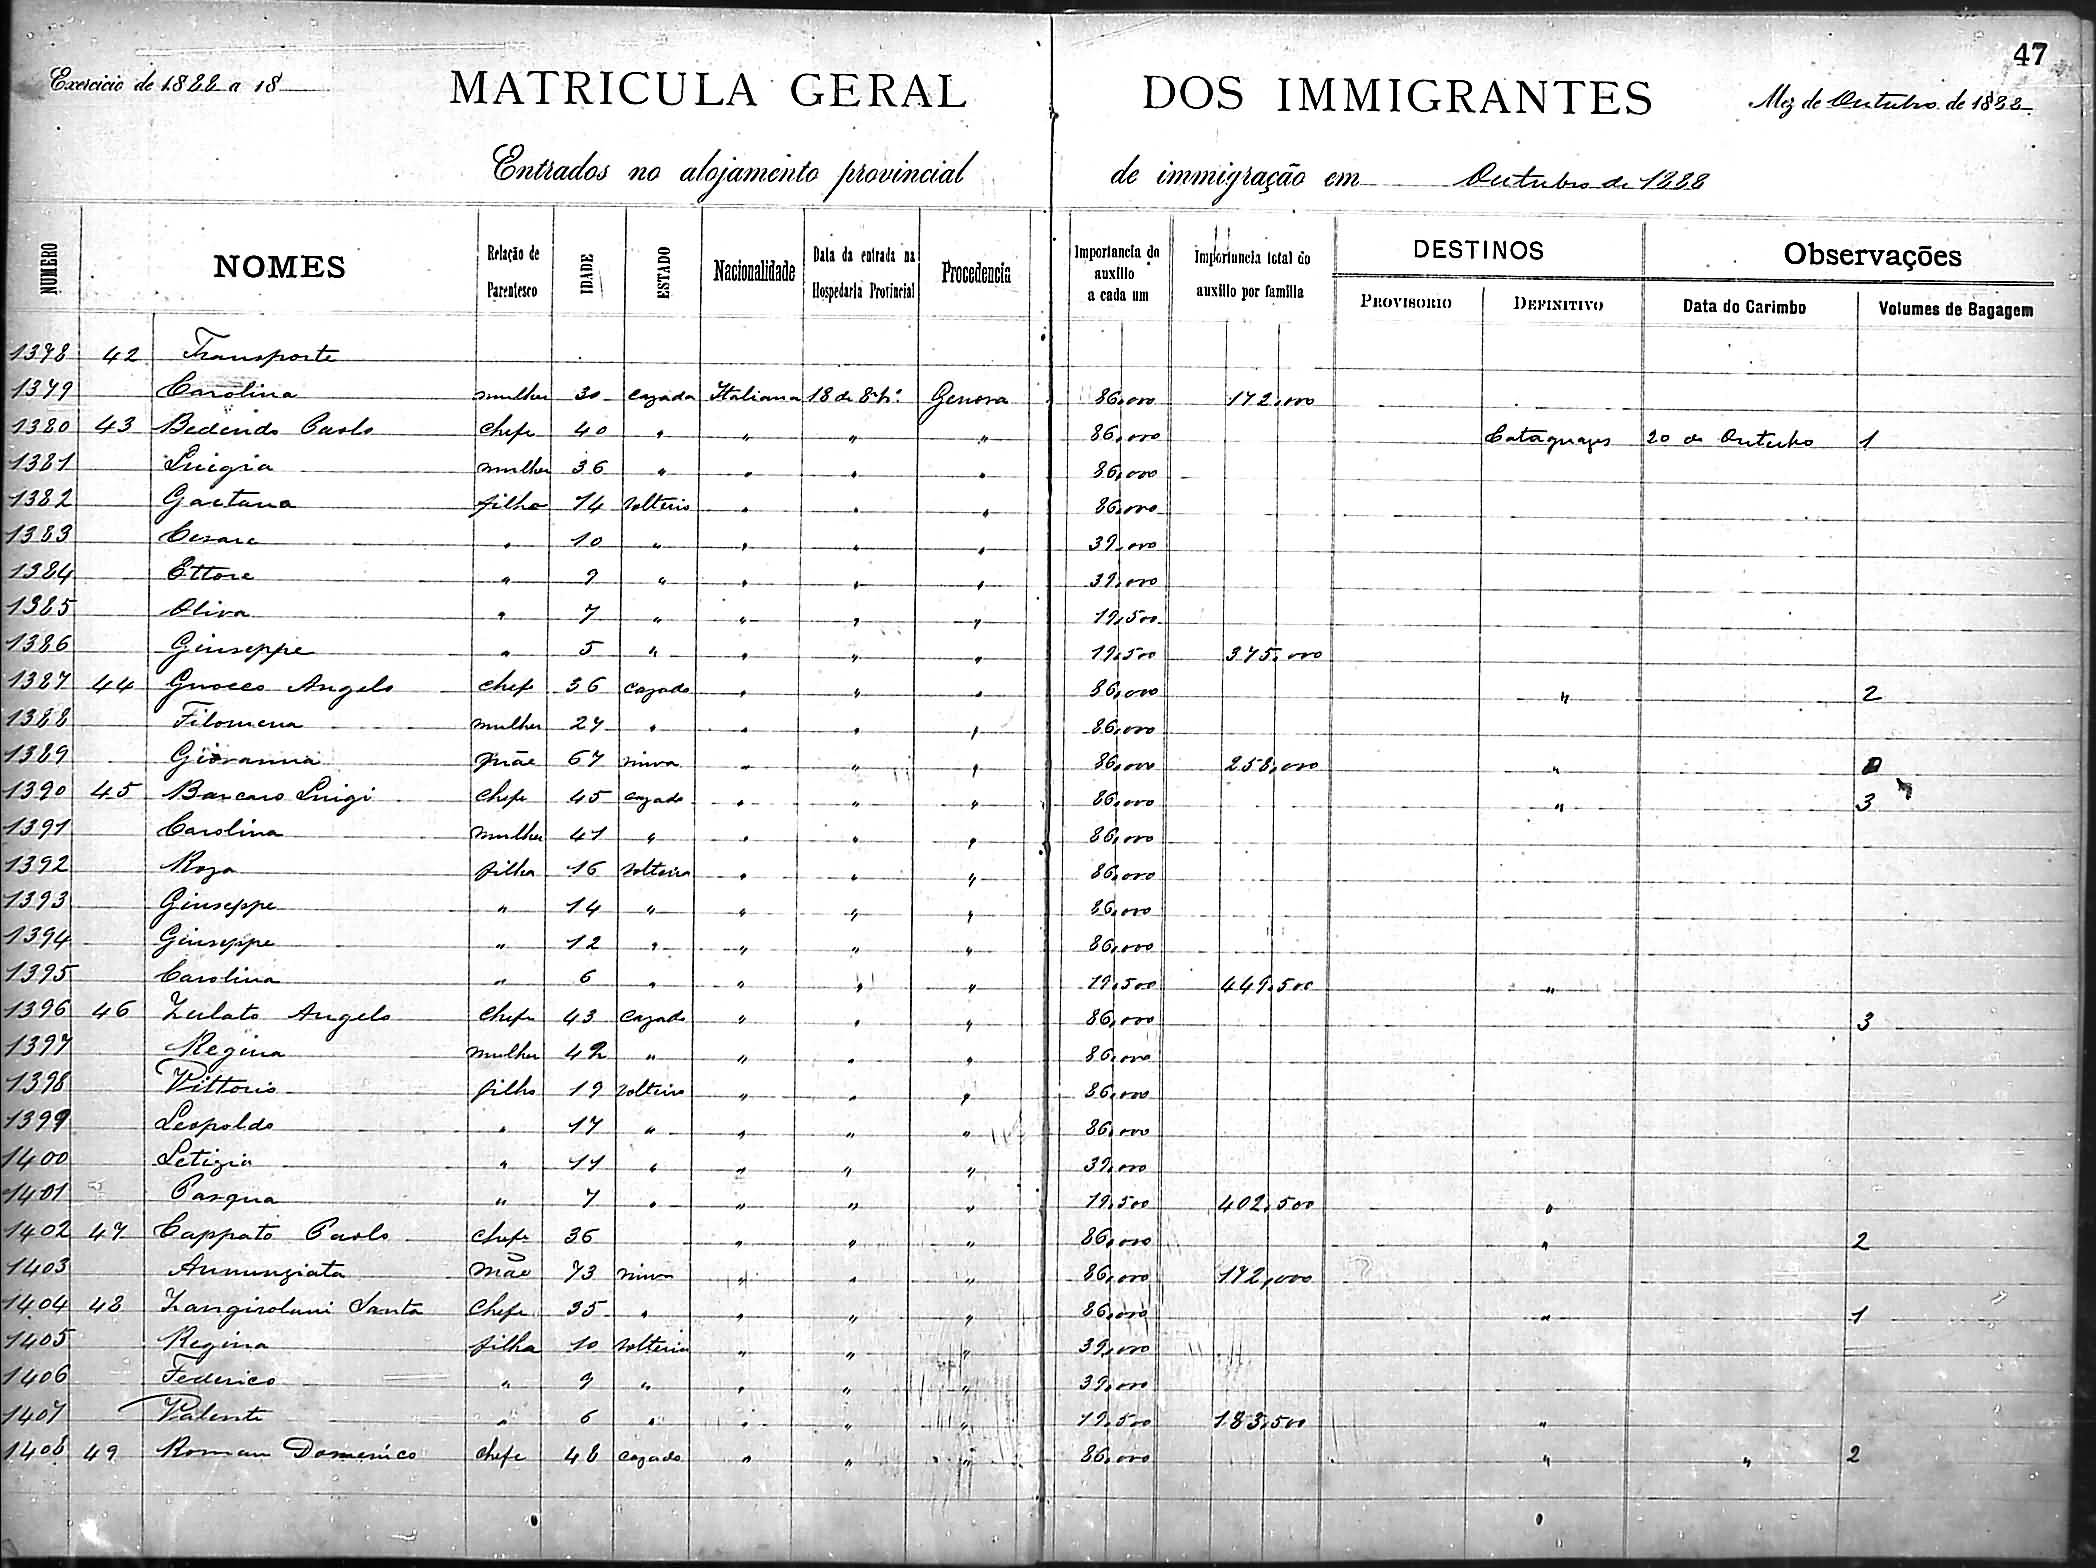 47
Exercicio de 1888 a 18
MATRICULA GERAL DOS IMMIGRANTES
Mez de Outubro de 1888
Entrados no alojamento provincial de immigração em Outubro de 1888
NUMERO NOMES Relação de Parentesco IDADE ESTADO Nacionalidade Data da entrada na Hospedaria Provincial Procedencia Importancia do auxilio a cada um Importancia total do auxilio por familia DESTINOS PROVISORIO DEFINITIVO Observações Data do Carimbo Volumes de Bagagem
1378 42 Transporte
1379 Carolina mulher 30 cazada Italiana 18 de 8bro Genova 86,000 172,000
1380 43 Bedendo Paolo chefe 40 " " " " 86,000 Cataguazes 20 de Outubro 1
1381 Luigia mulher 36 " " " " 86,000
1382 Gaetana filha 14 solteiro " " " 86,000
1383 Cesare " 10 " " " " 39,000
1384 Ettore " 9 " " " " 39,000
1385 Oliva " 7 " " " " 19,500
1386 Giuseppe " 5 " " " " 19,500 375,000
1387 44 Gnocco Angelo chefe 36 cazado " " " 86,000 " 2
1388 Filomena mulher 27 " " " " 86,000
1389 Giovanna mãe 67 viuva " " " 86,000 258,000 "
1390 45 Barcaro Luigi chefe 45 cazado " " " 86,000 " 3
1391 Carolina mulher 41 " " " " 86,000
1392 Roza filha 16 solteira " " " 86,000
1393 Giuseppe " 14 " " " " 86,000
1394 Giuseppe " 12 " " " " 86,000
1395 Carolina " 6 " " " " 19,500 449,500 "
1396 46 Zulato Angelo chefe 43 cazado " " " 86,000 3
1397 Regina mulher 42 " " " " 86,000
1398 Vittorio filho 19 solteiro " " " 86,000
1399 Leopoldo " 17 " " " " 86,000
1400 Letizia " 11 " " " " 39,000
1401 Pasqua " 7 " " " " 19,500 402,500 "
1402 47 Cappato Paolo chefe 36 " " " 86,000 " 2
1403 Annunziata mãe 73 viuva " " " 86,000 172,000
1404 48 Zangirolami Santa chefe 35 " " " " 86,000 " 1
1405 Regina filha 10 solteira " " " 39,000
1406 Federico " 9 " " " " 39,000
1407 Valente " 6 " " " " 19,500 183,500 "
1408 49 Roman Domenico chefe 48 cazado " " " 86,000 " " 2